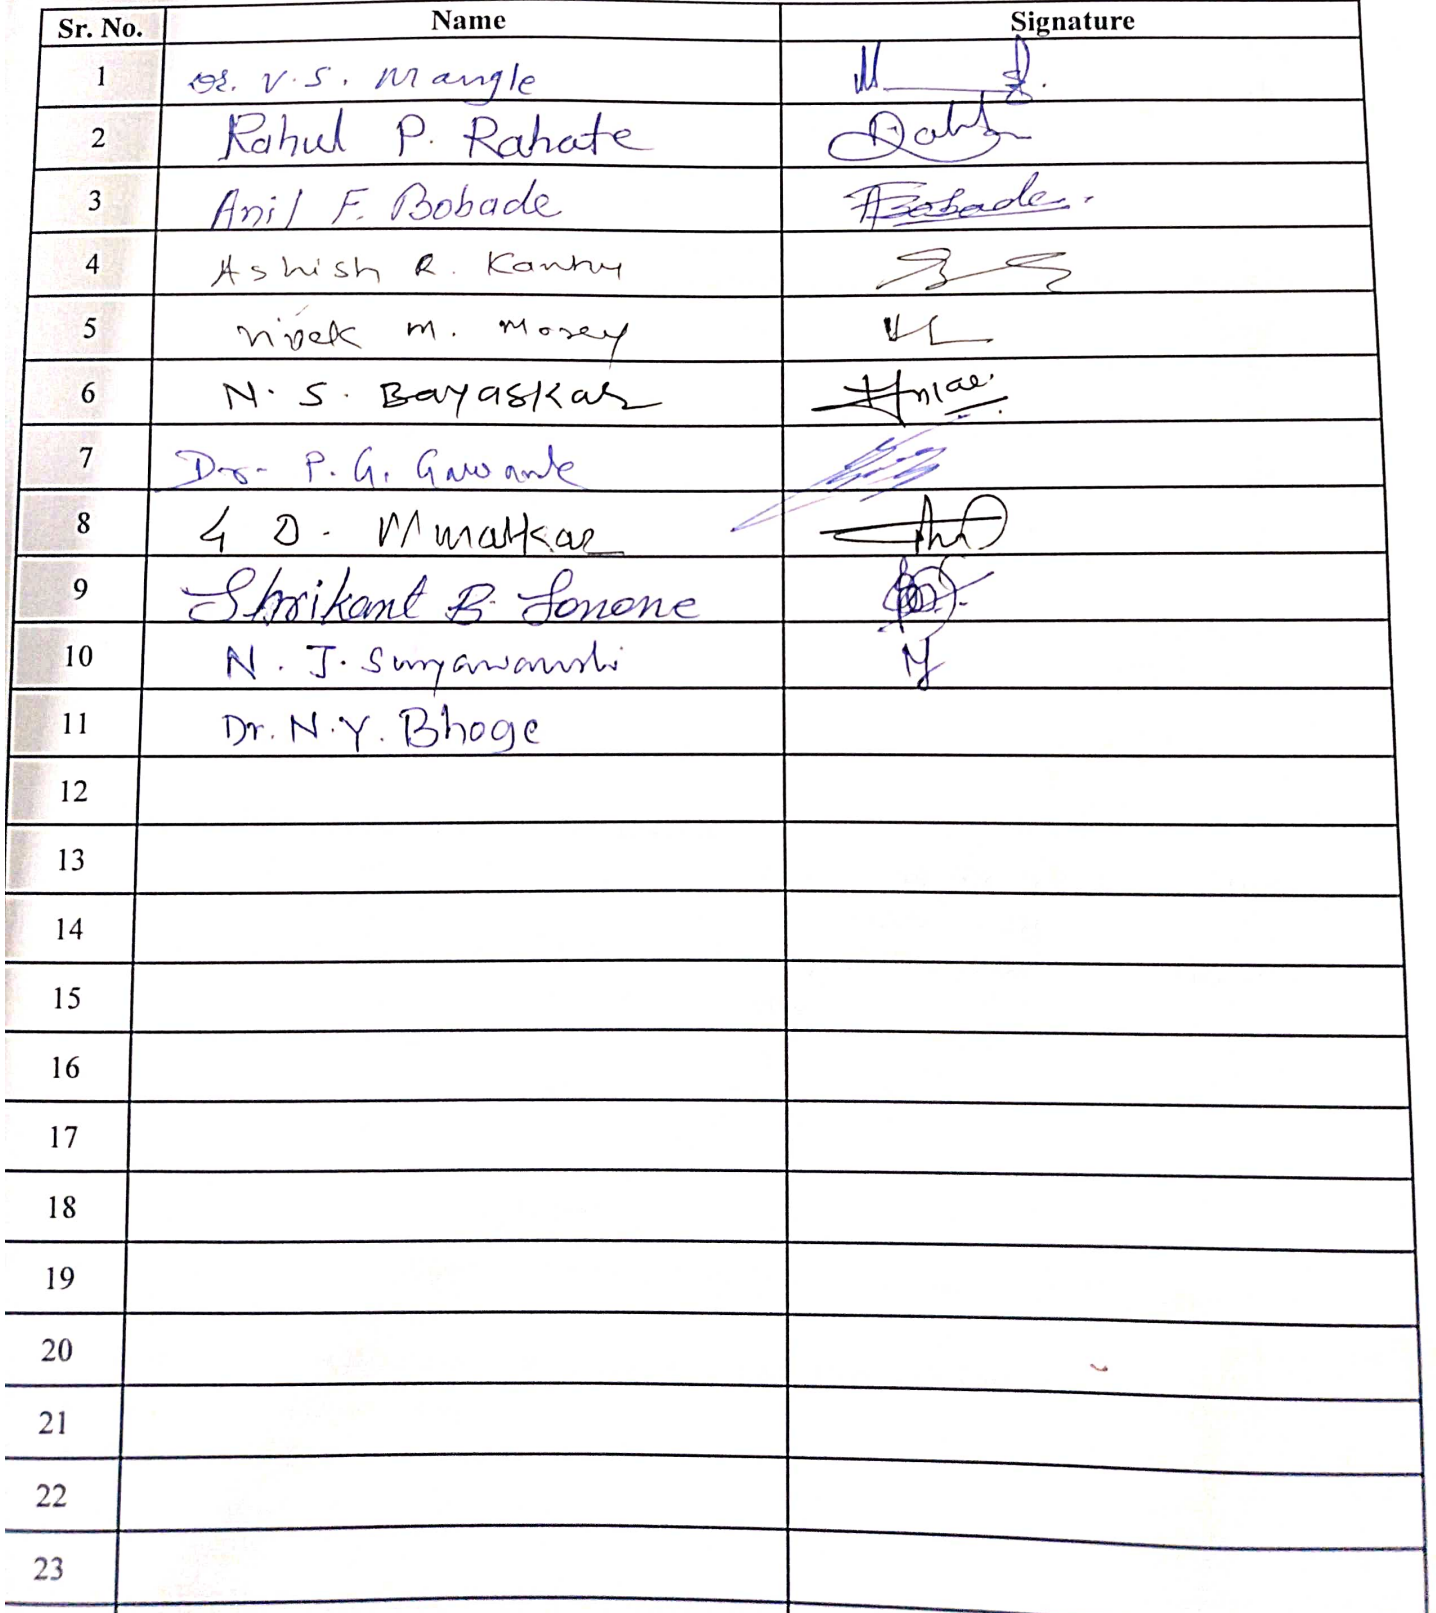 Sr. No. Name Signature
1 Dr. V.S. Mangle
2 Rahul P. Rahate
3 Anil F. Bobade ABobade.
4 Ashish R.
5 Vivek M. Morey
6 N. S. Bayaskar
7 Dr. P. G. Gawande
8 D.
9 Shrikant B. Sonone
10 N. J. Suryawanshi
11 Dr. N.Y. Bhoge
12
13
14
15
16
17
18
19
20
21
22
23